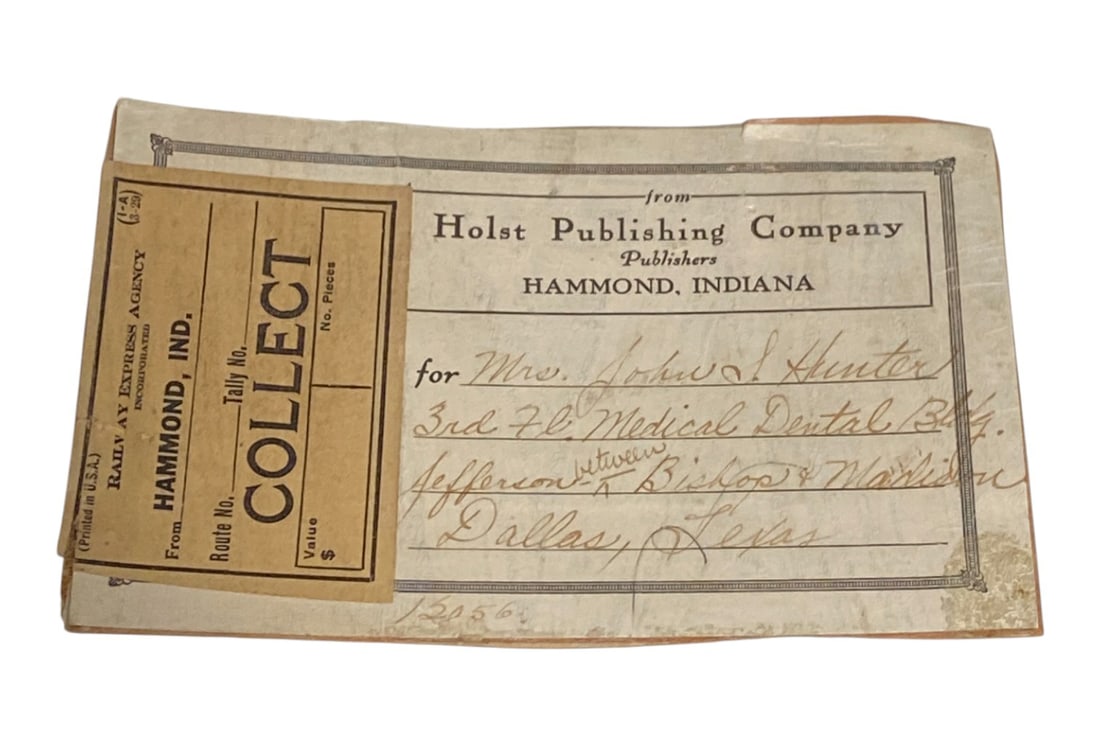 (Printed in U.S.A.)
RAILWAY EXPRESS AGENCY
INCORPORATED
(1-A)
(3-29)
From HAMMOND, IND.
Route No. Tally No.
COLLECT
Value
$
No. Pieces
from
Holst Publishing Company
Publishers
HAMMOND, INDIANA
for Mrs. John S. Hunter
3rd Fl. Medical Dental Bldg.
Jefferson between Bishop & Madison
Dallas, Texas
12056